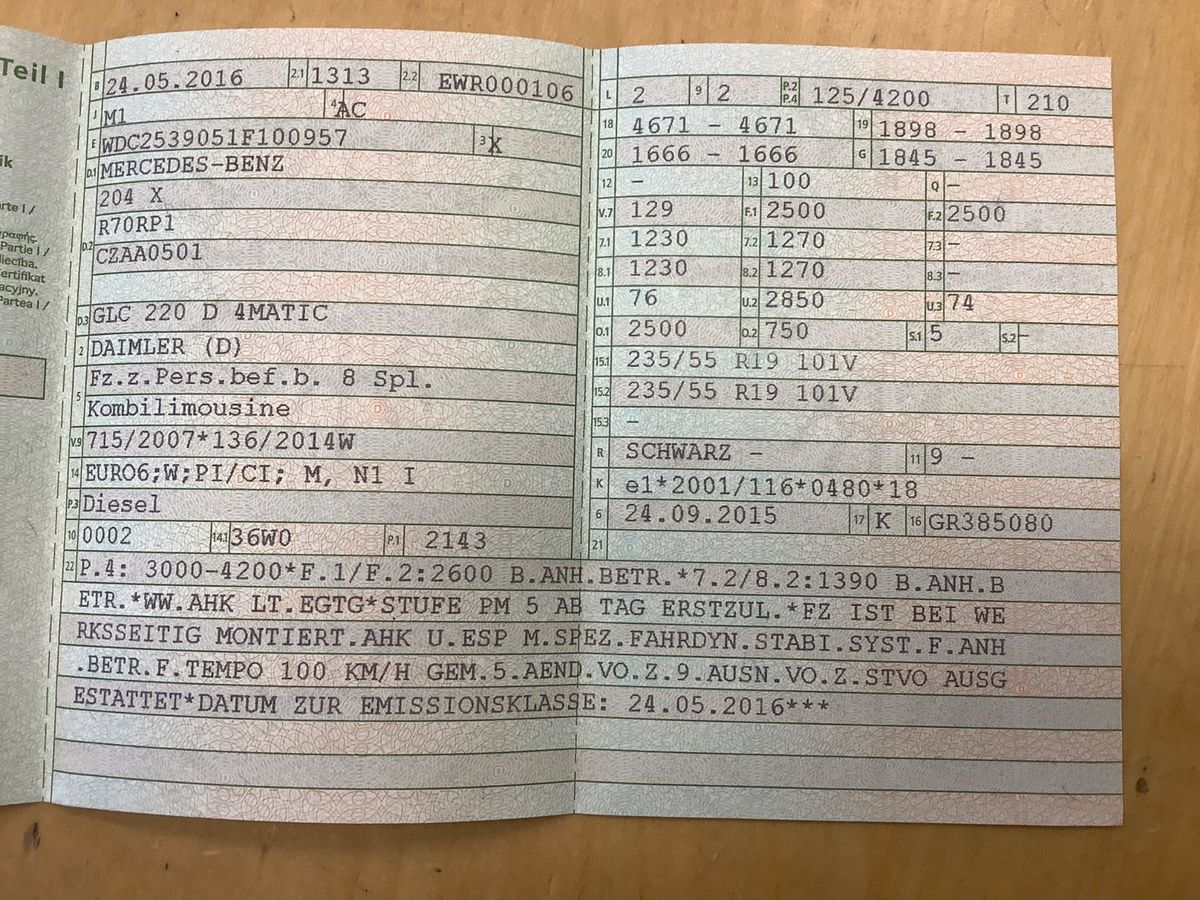 Teil I
ik
arte I /
Partie I /
liecība.
Certifikat
acyjny.
Partea I /
B 24.05.2016 2.1 1313 2.2 EWR000106
J M1 4 AC
E WDC2539051F100957 3 X
D.1 MERCEDES-BENZ
D.2 204 X
R70RP1
CZAA0501
D.3 GLC 220 D 4MATIC
2 DAIMLER (D)
5 Fz.z.Pers.bef.b. 8 Spl.
Kombilimousine
V.9 715/2007*136/2014W
14 EURO6;W;PI/CI; M, N1 I
P.3 Diesel
10 0002 14.1 36W0 P.1 2143
L 2 9 2 P.2 P.4 125/4200 T 210
18 4671 - 4671 19 1898 - 1898
20 1666 - 1666 G 1845 - 1845
12 - 13 100 Q -
V.7 129 F.1 2500 F.2 2500
7.1 1230 7.2 1270 7.3 -
8.1 1230 8.2 1270 8.3 -
U.1 76 U.2 2850 U.3 74
O.1 2500 O.2 750 S.1 5 S.2 -
15.1 235/55 R19 101V
15.2 235/55 R19 101V
15.3 -
R SCHWARZ - 11 9 -
K e1*2001/116*0480*18
6 24.09.2015 17 K 16 GR385080
21
22 P.4: 3000-4200*F.1/F.2:2600 B.ANH.BETR.*7.2/8.2:1390 B.ANH.B
ETR.*WW.AHK LT.EGTG*STUFE PM 5 AB TAG ERSTZUL.*FZ IST BEI WE
RKSSEITIG MONTIERT.AHK U.ESP M.SPEZ.FAHRDYN.STABI.SYST.F.ANH
.BETR.F.TEMPO 100 KM/H GEM.5.AEND.VO.Z.9.AUSN.VO.Z.STVO AUSG
ESTATTET*DATUM ZUR EMISSIONSKLASSE: 24.05.2016***